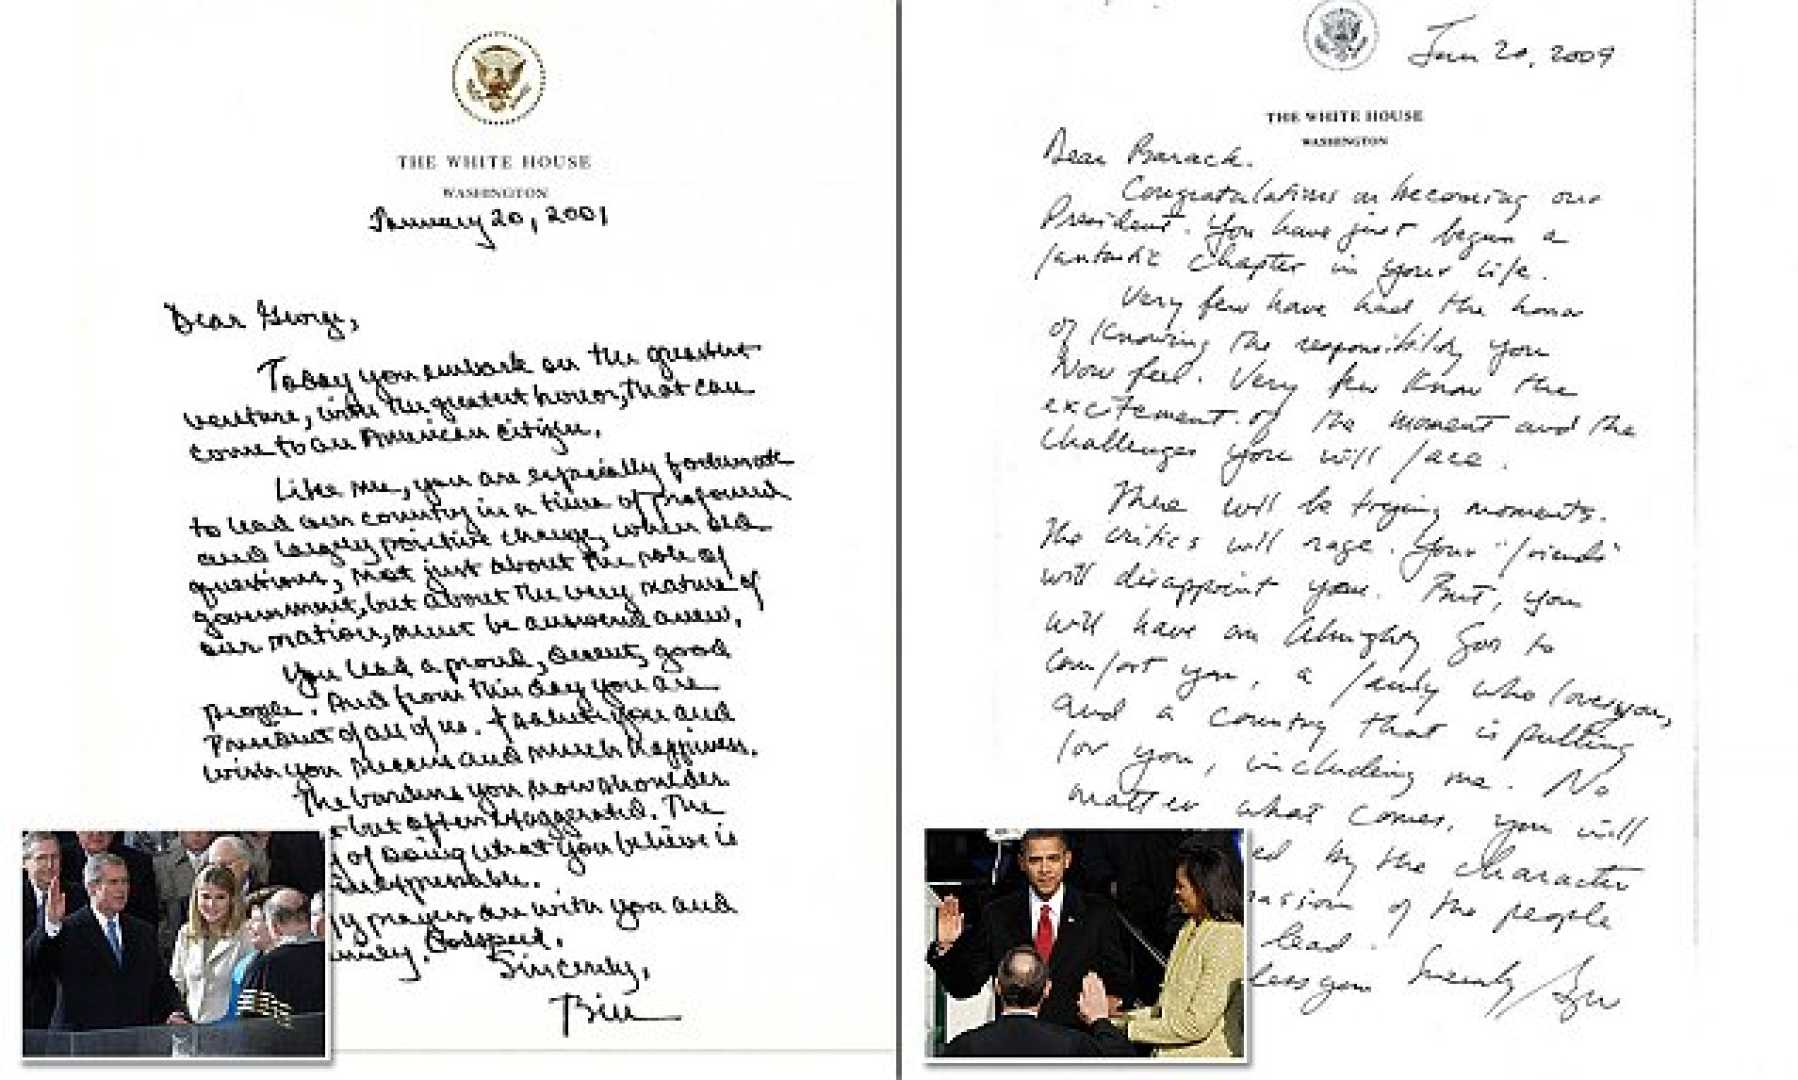 THE WHITE HOUSE
WASHINGTON
January 20, 2001
Dear George,
Today you embark on the greatest
venture, with the greatest honor, that can
come to an American citizen.
Like me, you are especially fortunate
to lead our country in a time of profound
and largely positive change, when old
questions, not just about the role of
government, but about the very nature of
our nation, must be answered anew.
You lead a proud, decent, good
people. And from this day you are
President of all of us. I salute you and
wish you success and much happiness.
The burdens you now shoulder
but often exaggerated. The
of doing what you believe is
inexpressible.
My prayers are with you and
family. Godspeed.
Sincerely,
Bill
Jan 20, 2009
THE WHITE HOUSE
WASHINGTON
Dear Barack.
Congratulations on becoming our
President. You have just begun a
fantastic chapter in your life.
Very few have had the honor
of knowing the responsibility you
now feel. Very few know the
excitement of the moment and the
challenges you will face.
There will be trying moments.
The critics will rage. Your "friends"
will disappoint you. But, you
will have an Almighty God to
comfort you, a family who loves you,
and a country that is pulling
for you, including me. No
matter what comes, you will
ed by the character
passion of the people
lead.
less you. Sincerely,